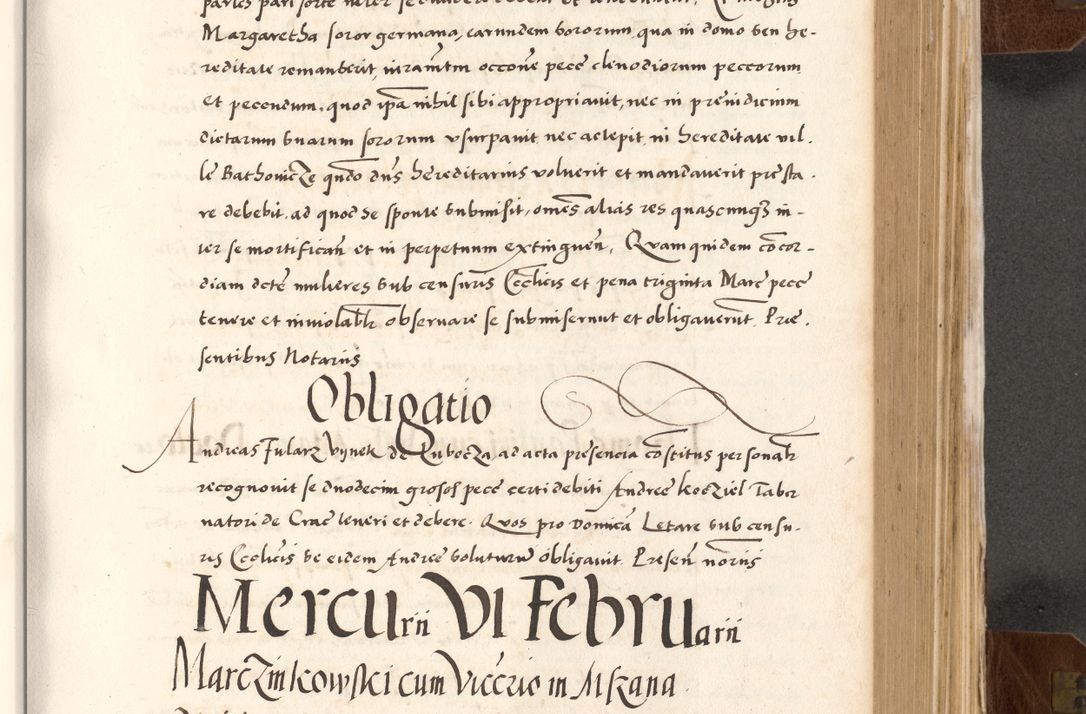 partes pari sorte inter se dividere debent et tenebuntur. Et insup
Margaretha soror germana, earundem sororum, qua in domo seu he-
reditate remanserit, iuramtm occone pecc clenodiorum peccorum
et pecudum, quod ipa nihil sibi appropriavit, nec in preiudicium
dictarum suarum sororum usurpavit nec accepit, in hereditate vil-
le Bathovicze qndo dns hereditarius voluerit et mandaverit presta-
re debebit, ad quod se sponte submisit, omes alias res quascunqz in-
ter se mortifican et in perpetuum extinguen, Quam quidem cocor-
diam dcte mulieres sub censuris Ecclicis et pena triginta Marc pecc
tenere et inviolablr observare se submiserunt et obligaverunt. Pre-
sentibus Notariis
Obligatio
Andreas Fularz Vynek de Lubocza, ad acta presencia costitus personalr
recognovit se duodecim grosos pecc certi debiti Andree Kocziel Taber
natori de Crac teneri et debere. Quos pro Dominica Letare sub censu-
ris Eccliciis se eidem Andree soluturum obligavit. Presen noriis
Mercurii VI Februarii
Marczinkowski cum Viccrio in Mszana